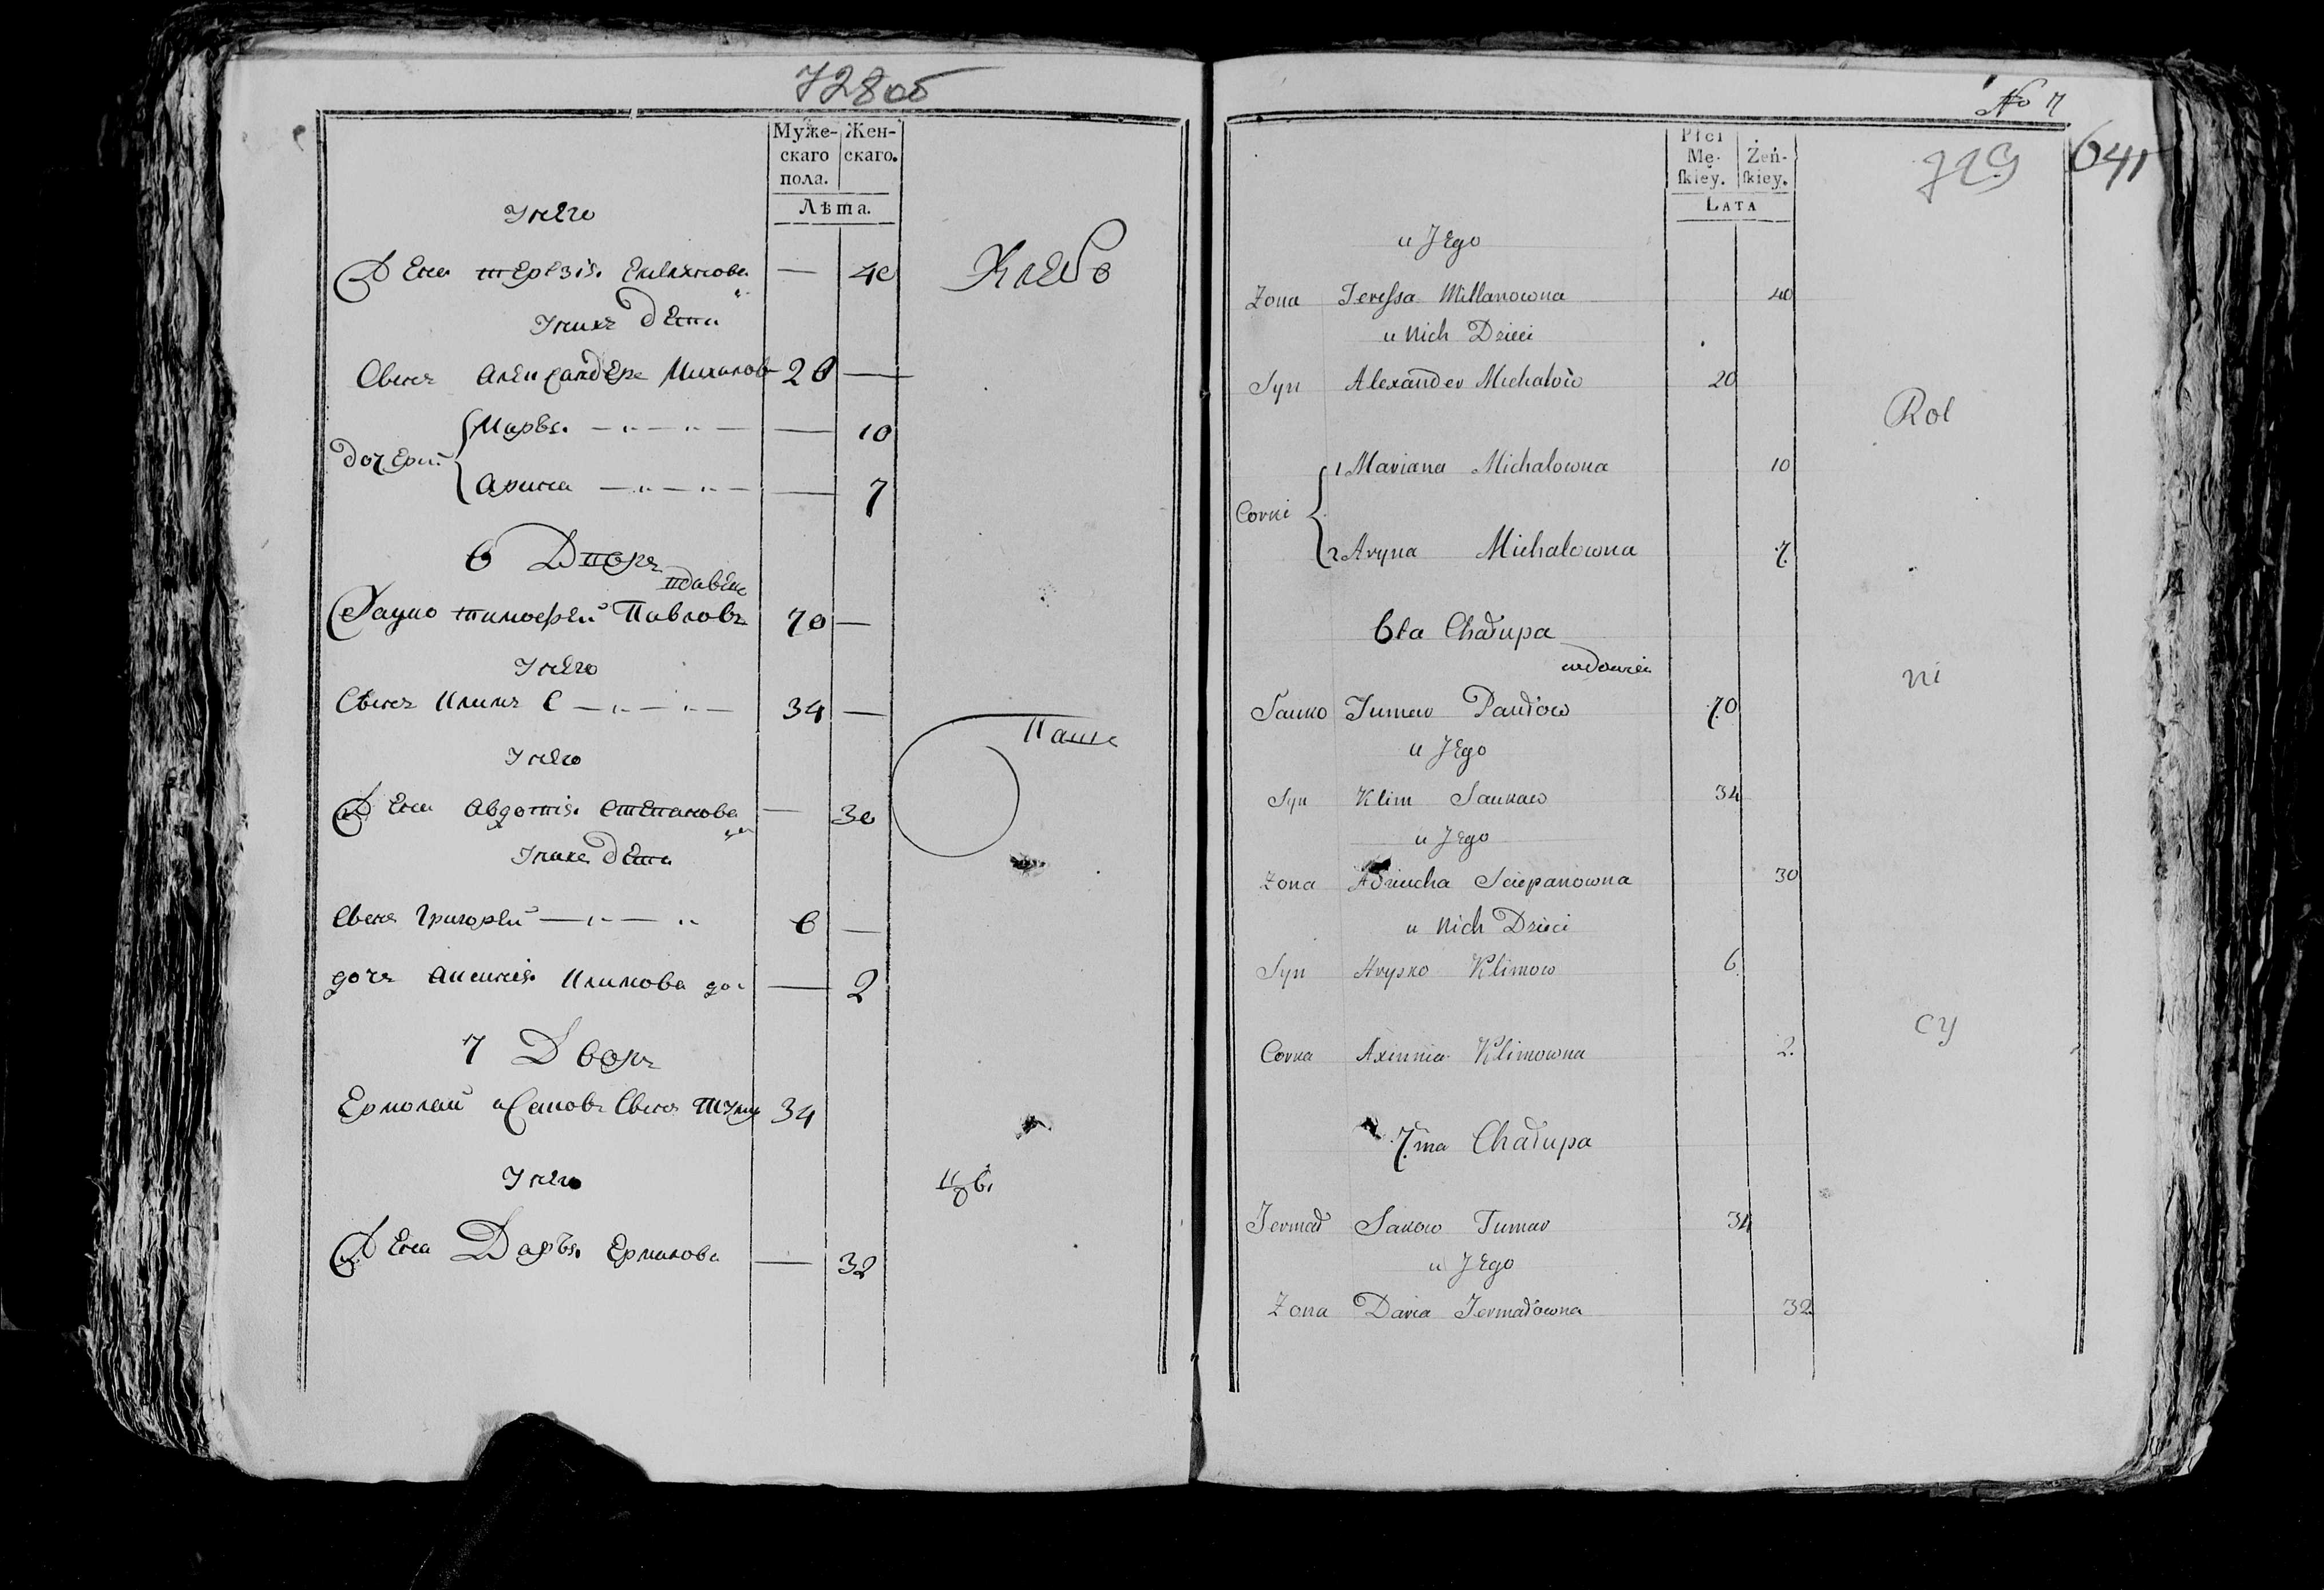 728об
Муже-
скаго
пола.
Жен-
скаго.
Лѣта.
Унего
Жена терезія Емелянова — 40
Унихъ дети
Хлебо
Сынъ Александеръ Михаловъ 20 —
дочери
Марья — „ — „ — — 10
Арина — „ — „ — — 7
6 Дворъ
вдовецъ
Сауко тимофей Павловъ 70 —
Унего
Сынъ Климъ С — „ — „ — 34 —
Паше
Унего
Жена Авдотія Степанова — 30
Унихъ дети
Сынъ Григорей — „ — „ 6 —
дочъ Аксинія Климова до: — 2
7 Дворъ
Ермолай Саковъ Сынъ 34
Унего
цы
Жена Дарья Ермолова — 32
№ 7
729
641
Płci
Mę-
ſkiey.
Żeń-
ſkiey.
LATA
u Jego
Zona Teressa Millanowna 40
u Nich Dzieci
Syn Alexander Michałow 20
Rol
Corki
1 Mariana Michalowna 10
2 Aryna Michalowna 7.
6ta Chałupa
wdowiec
Sauko Tumar Pawłow 70
ni
u Jego
Syn Klim Saukow 34
u Jego
Zona Adziucha Sciepanowna 30
u Nich Dzieci
Syn Hrysko Klimow 6
cy
Corka Axinnia Klimowna 2.
7.ma Chałupa
Jermał Sakow Tumar 34
u Jego
Zona Daria Jermałowna 32